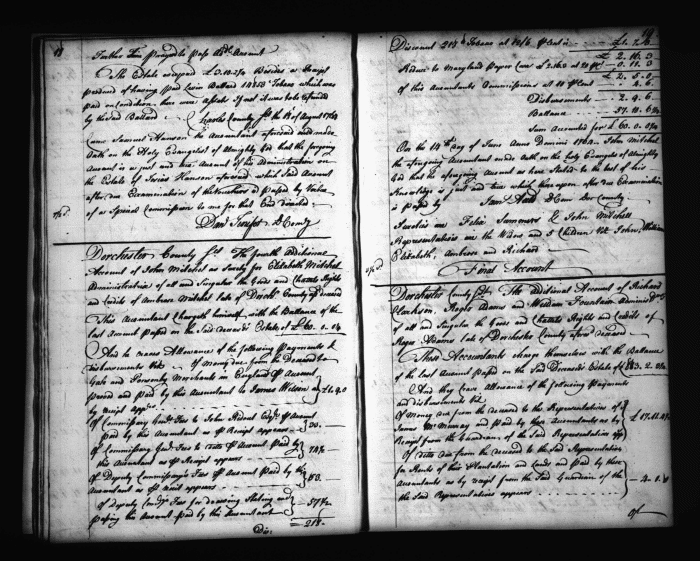 Further Time prayed to pass Addl Account
The Estate overpaid £ 3.10.2½ Besides a Receipt
produced of having paid Levin Ballard 1485 lb Tobaco which was
paid on Condition there were Assets if not it was to be refunded
by the said Ballard Charles County Sst the 18 of August 1764
Came Samuel Hanson the Accountant aforesaid and made
Oath on the Holy Evangelist of Almighty God that the foregoing
Account is a just and true Account of his Administration on
the Estate of Hanson aforesaid which said Account
after due Examination of the Vouchers is passed by Virtue
of a Special Commission to me for that End directed
D Comsy
Dorchester County Sst The fourth additional
Account of John Mitchel as Surety for Elizabeth Mitchel
Administratrix of all and Singular the Goods and Chattels Rights
and Credits of Ambrose Mitchel late of Dorcht County deceased
This Accountant Chargeth himself with the Ballance of the
last Account passed on the said deceaseds Estate of £ 60.0.0¼
And he craves Allowance of the following Payments &
Disbursements Vizt Of Money due from the Deceased to
Gale and Ponsonby Merchants in England as Account
proved and paid by this Accountant to James Wilson as £ 40
by receipt appears
Of Commissary Genls Fees to John Ridout Esqr as Account
paid by this Accountant as Receipt appears 30.
Of Commissary Genls Fees to ditto Account Paid by
this Accountant as Receipt appears 74½
Of Deputy Commissarys Fees Account Paid by the
Accountant as receipt appears 53.
Of deputy Comsys Fees for drawing Stating and
passing this Account paid by this Accountant 57½
215.
Discount 215 lb Tobaco at 12/6 P Cent is £ 1.
£ 2.16.3
Reduce to Maryland Paper Cur 0.11.3
£ 2.5.0
of this Accountants Commissions at 10 P Cent
Disbursements 2.4.6
Ballance 57.10.6¼
Sum Accounted for £ 60.0.0¼
On the 14th Day of June Anno Domini 1764 John Mitchel
the aforegoing Accountant made Oath on the holy Evangels of Almighty
God that the aforegoing Account as here Stated to the best of his
Knowledge is just and true which thereupon after due Examination
is passed by
Sureties are Summers & John Mitchell
Representatives are the Widow and 5 Children Vizt John, William
Elizabeth, Ambrose and Richard
Final Account
Dorchester County Sst The Additional Account of Richard
Clarkson, Adams and William Fountain Administrs
of all and Singular the Goods and Chattels Rights and Credits of
Adams late of Dorchester County aforesd deceased
These Accountants charge themselves with the Ballance
of the last Account passed on the said Deceaseds Estate of £
And they crave Allowance of the following Payments
and disbursements Vizt
Of Money due from the deceased to the Representatives of
James McMurray and paid by these Accountants as by
Receipt from the Guardian of the said Representatives app £ 17.
Of ditto due from the deceased to the said Representatives
for Rents of this Plantation and Lands and Paid by these
Accountants as by receipt from the said Guardian of the
the said Representatives appears 4.
Of